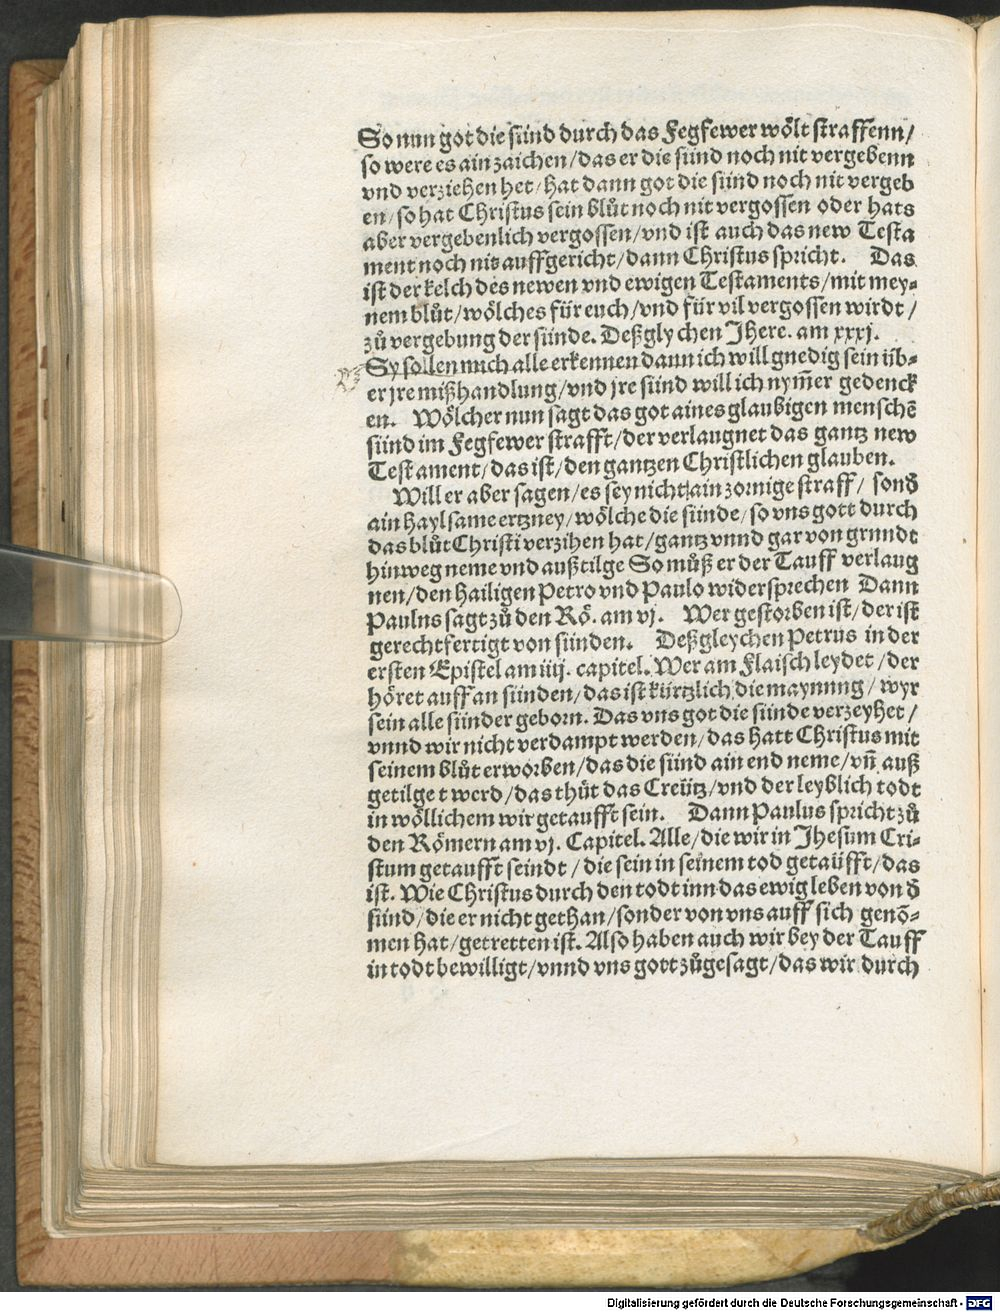 So nun got die sünd durch das Fegfewer wölt straffenn/
so were es ain zaichen/das er die sünd noch nit vergebenn
vnd verziehen het/hat dann got die sünd noch nit vergeb
en/so hat Christus sein blůt noch nit vergossen oder hats
aber vergebenlich vergossen/vnd ist auch das new Testa
ment noch nit auffgericht/dann Christus spricht. Das
ist der kelch des newen vnd ewigen Testaments/mit mey⸗
nem blůt/wölches für euch/vnd für vil vergossen wirdt/
zů vergebung der sünde. Deßglychen Jhere. am xxxj.
Sy sollen mich alle erkennen dann ich will gnedig sein üb⸗
er jre mißhandlung/vnd jre sünd will ich nym̄er gedenck
en. Wölcher nun sagt das got aines glaubigen menschē
sünd im Fegfewer strafft/der verlaugnet das gantz new
Testament/das ist/den gantzen Christlichen glauben.
Will er aber sagen/es sey nicht ain zornige straff/ sonđ
ain haylsame ertzney/wölche die sünde/so vns gott durch
das blůt Christi verzihen hat/gantz vnnd gar von grundt
hinweg neme vnd außtilge So můß er der Tauff verlaug
nen/den hailigen Petro vnd Paulo widersprechen Dann
Paulus sagt zů den Rö. am vj. Wer gestorben ist/der ist
gerechtfertigt von sünden. Deßgleychen Petrus in der
ersten Epistel am iiij. capitel. Wer am Flaisch leydet/der
höret auff an sünden/das ist kürtzlich die maynung/wyr
sein alle sünder geborn. Das vns got die sünde verzeyhet/
vnnd wir nicht verdampt werden/das hatt Christus mit
seinem blůt erworben/das die sünd ain end neme/vn̄ auß
getilget werd/das thůt das Creütz/vnd der leyblich todt
in wöllichem wir getaufft sein. Dann Paulus spricht zů
den Römern am vj. Capitel. Alle/die wir in Jhesum Cri⸗
stum getaufft seindt/die sein in seinem tod getaüfft/das
ist. Wie Christus durch den todt inn das ewig leben von đ
sünd/die er nicht gethan/sonder von vns auff sich genō⸗
men hat/getretten ist. Also haben auch wir bey der Tauff
in todt bewilligt/vnnd vns gott zůgesagt/das wir durch
Digitalisierung gefördert durch die Deutsche Forschungsgemeinschaft - DFG